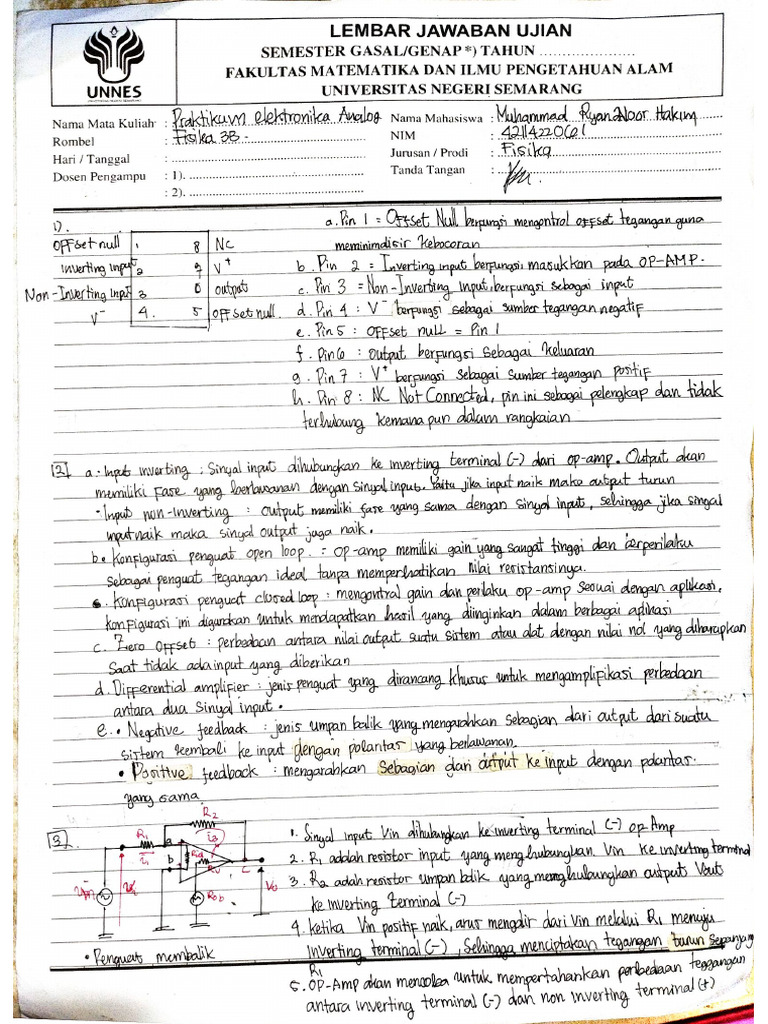 LEMBAR JAWABAN UJIAN
SEMESTER GASAL/GENAP *) TAHUN ....................
FAKULTAS MATEMATIKA DAN ILMU PENGETAHUAN ALAM
UNIVERSITAS NEGERI SEMARANG
UNNES
Nama Mata Kuliah : Praktikum elektronika Analog
Rombel : Fisika 3B
Hari / Tanggal :
Dosen Pengampu : 1).
: 2).
Nama Mahasiswa : Muhammad Ryan Noor Hakim
NIM : 4211422061
Jurusan / Prodi : Fisika
Tanda Tangan :
1).
OFFset null 1 8 NC
inverting input 2 7 V+
Non-Inverting input 3 6 output
V- 4. 5 OFFset null.
a. Pin 1 = OFFset Null berfungsi mengontrol offset tegangan guna
meminimdisir kebocoran
b. Pin 2 = Inverting input berfungsi masukkan pada OP-AMP.
c. Pin 3 = Non-Inverting Input berfungsi sebagai input
d. Pin 4 : V- berfungsi sebagai sumber tegangan negatif
e. Pin 5 : OFFset null = Pin 1
f. Pin 6 : output berfungsi sebagai keluaran
g. Pin 7 : V+ berfungsi sebagai sumber tegangan positif
h. Pin 8 : NC Not Connected, pin ini sebagai pelengkap dan tidak
terhubung kemana pun dalam rangkaian
2 a. Input inverting : Sinyal input dihubungkan ke inverting terminal (-) dari op-amp. Output akan
memiliki fase yang berlawanan dengan sinyal input. Yaitu jika input naik maka output turun
• Input non-inverting : output memiliki fase yang sama dengan sinyal input, sehingga jika singal
input naik maka sinyal output juga naik.
b. Konfigurasi penguat open loop. = op-amp memiliki gain yang sangat tinggi dan berperilaku
sebagai penguat tegangan ideal tanpa memperhatikan nilai resistansinya.
• Konfigurasi penguat closed loop : mengontrol gain dan perilaku op-amp sesuai dengan aplikasi.
konfigurasi ini digunakan untuk mendapatkan hasil yang diinginkan dalam berbagai aplikasi
c. Zero Offset : perbedaan antara nilai output suatu sistem atau alat dengan nilai nol yang diharapkan
saat tidak ada input yang diberikan
d. Differential amplifier : jenis penguat yang dirancang khusus untuk mengamplifikasi perbedaan
antara dua sinyal input.
e. • Negative feedback : jenis umpan balik yang mengarahkan sebagian dari output dari suatu
sistem kembali ke input dengan polaritas yang berlawanan.
• Positive feedback : mengarahkan sebagian dari output ke input dengan polaritas
yang sama
3.
R1 R2
i1 i2
a b c
Vi Vo
• Penguat membalik
1. Sinyal input Vin dihubungkan ke inverting terminal (-) op Amp
2. R1 adalah resistor input yang menghubungkan Vin ke inverting terminal
3. R2 adalah resistor umpan balik yang menghubungkan outputs Vout
ke inverting terminal (-)
4. ketika Vin positif naik, arus mengalir dari Vin melalui R1 menuju
inverting terminal (-), sehingga menciptakan tegangan turun sepanjang
R1
5. OP-AMP akan mencoba untuk mempertahankan perbedaan teggangan
antara inverting terminal (-) dan non inverting terminal (+)